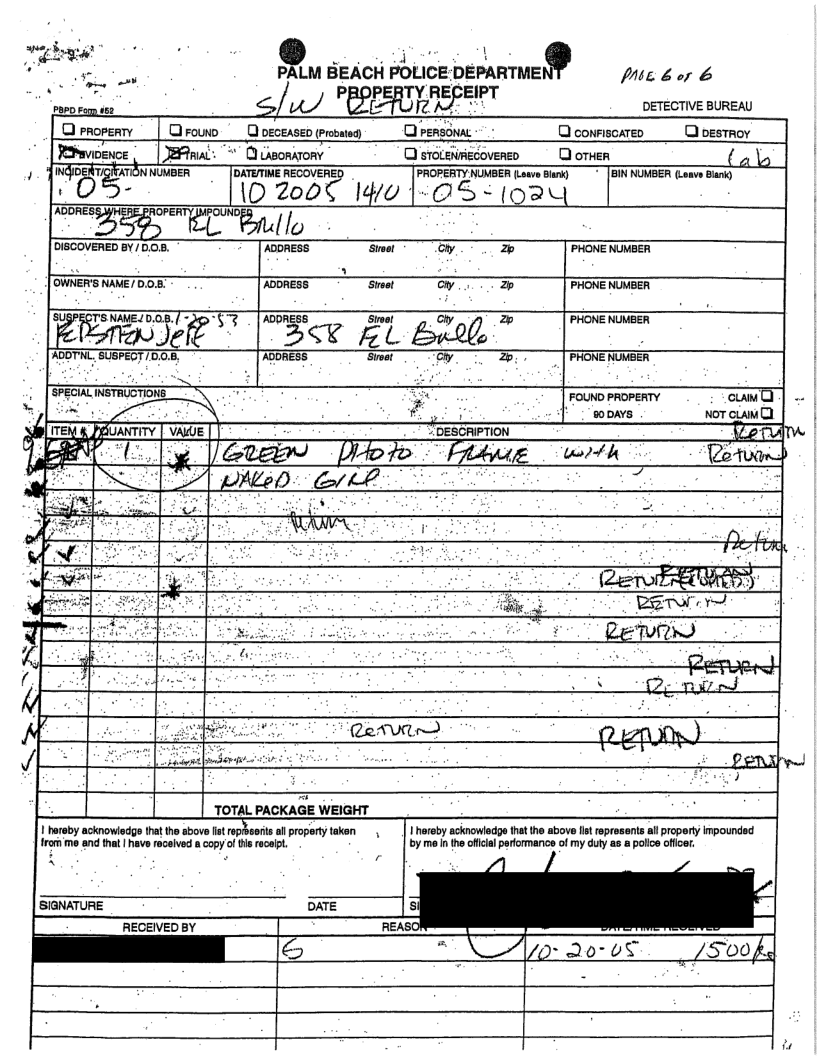 PAGE 6 of 6
PALM BEACH POLICE DEPARTMENT
PROPERTY RECEIPT
S/W RETURN
PBPD Form #52
DETECTIVE BUREAU
PROPERTY FOUND DECEASED (Probated) PERSONAL CONFISCATED DESTROY
EVIDENCE TRIAL LABORATORY STOLEN/RECOVERED OTHER lab
INCIDENT/CITATION NUMBER DATE/TIME RECOVERED PROPERTY NUMBER (Leave Blank) BIN NUMBER (Leave Blank)
05- 10 2005 1410 05-1024
ADDRESS WHERE PROPERTY IMPOUNDED
358 EL Brillo
DISCOVERED BY / D.O.B. ADDRESS Street City Zip PHONE NUMBER
OWNER'S NAME / D.O.B. ADDRESS Street City Zip PHONE NUMBER
SUSPECT'S NAME / D.O.B. 1-20-53 ADDRESS Street City Zip PHONE NUMBER
358 EL Brillo
ADDT'NL. SUSPECT / D.O.B. ADDRESS Street City Zip PHONE NUMBER
SPECIAL INSTRUCTIONS FOUND PROPERTY CLAIM
90 DAYS NOT CLAIM
ITEM # QUANTITY VALUE DESCRIPTION Return
1 GREEN PHOTO FRAME with Return
NAKED GIRL
Return
Return
RETURN
RETURN
RETURN
RETURN
RETURN
RETURN RETURN
RETURN
TOTAL PACKAGE WEIGHT
I hereby acknowledge that the above list represents all property taken
from me and that I have received a copy of this receipt.
I hereby acknowledge that the above list represents all property impounded
by me in the official performance of my duty as a police officer.
SIGNATURE DATE
RECEIVED BY REASON DATE/TIME RECEIVED
10-20-05 1500